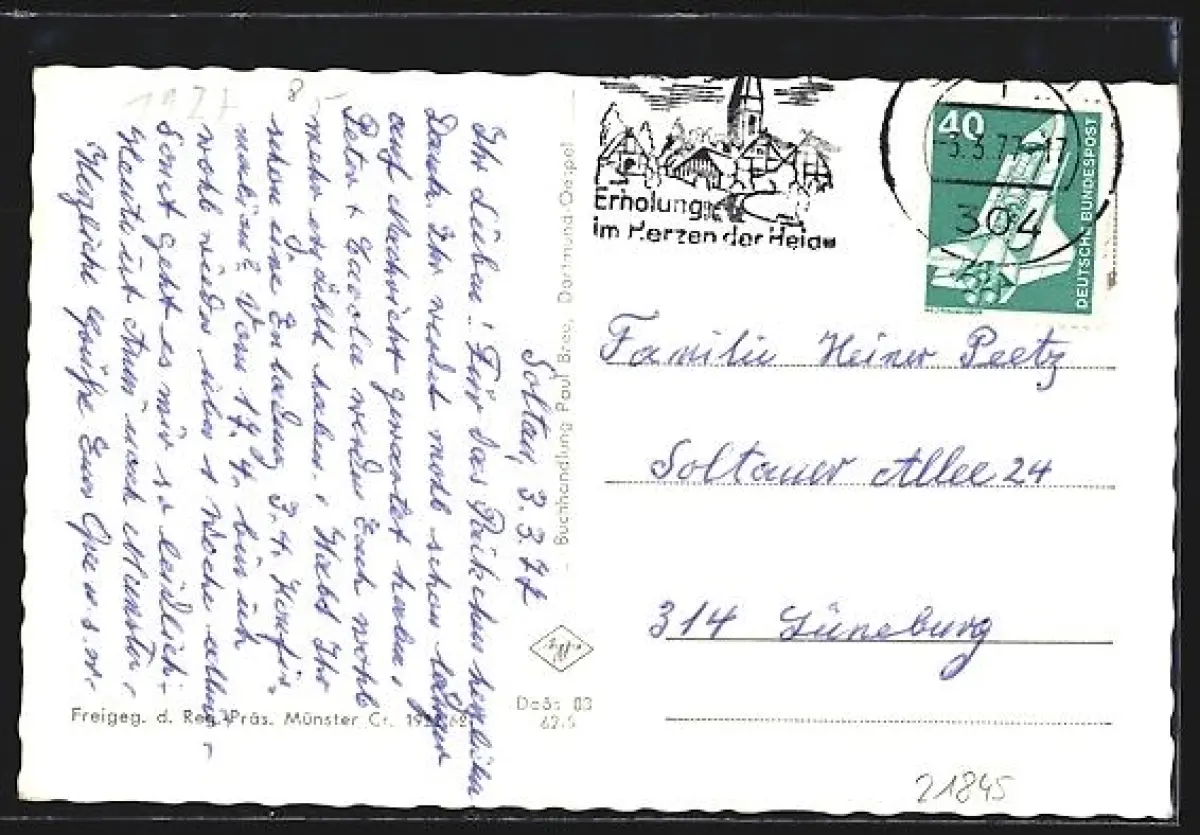 1977
8
Soltau, 3.3.77
Ihr Lieben! Für das Päckchen herzlichen
Dank. Ihr werdet wohl schon länger
auf Nachricht gewartet haben,
Peter + werden Euch wohl
mehr erzählt haben. Habt Ihr
schon eine Einladung z. 4.
mal auf. Vom 17.4. bin ich
wohl wieder über 1 Woche allein,
Sonst geht es mir so leidlich.
Heute ist nach Munster,
Herzliche Grüße Eure u.
Buchhandlung Paul Bree, Dortmund-Oespel
DoOs 03
62.5
Freigeg. d. Reg. Präs. Münster Cr.
Erholung
im Herzen der Heide
-3.3.77-17
304
40
DEUTSCHE BUNDESPOST
Familie Heiner Peetz
Soltauer Allee 24
314 Lüneburg
21845